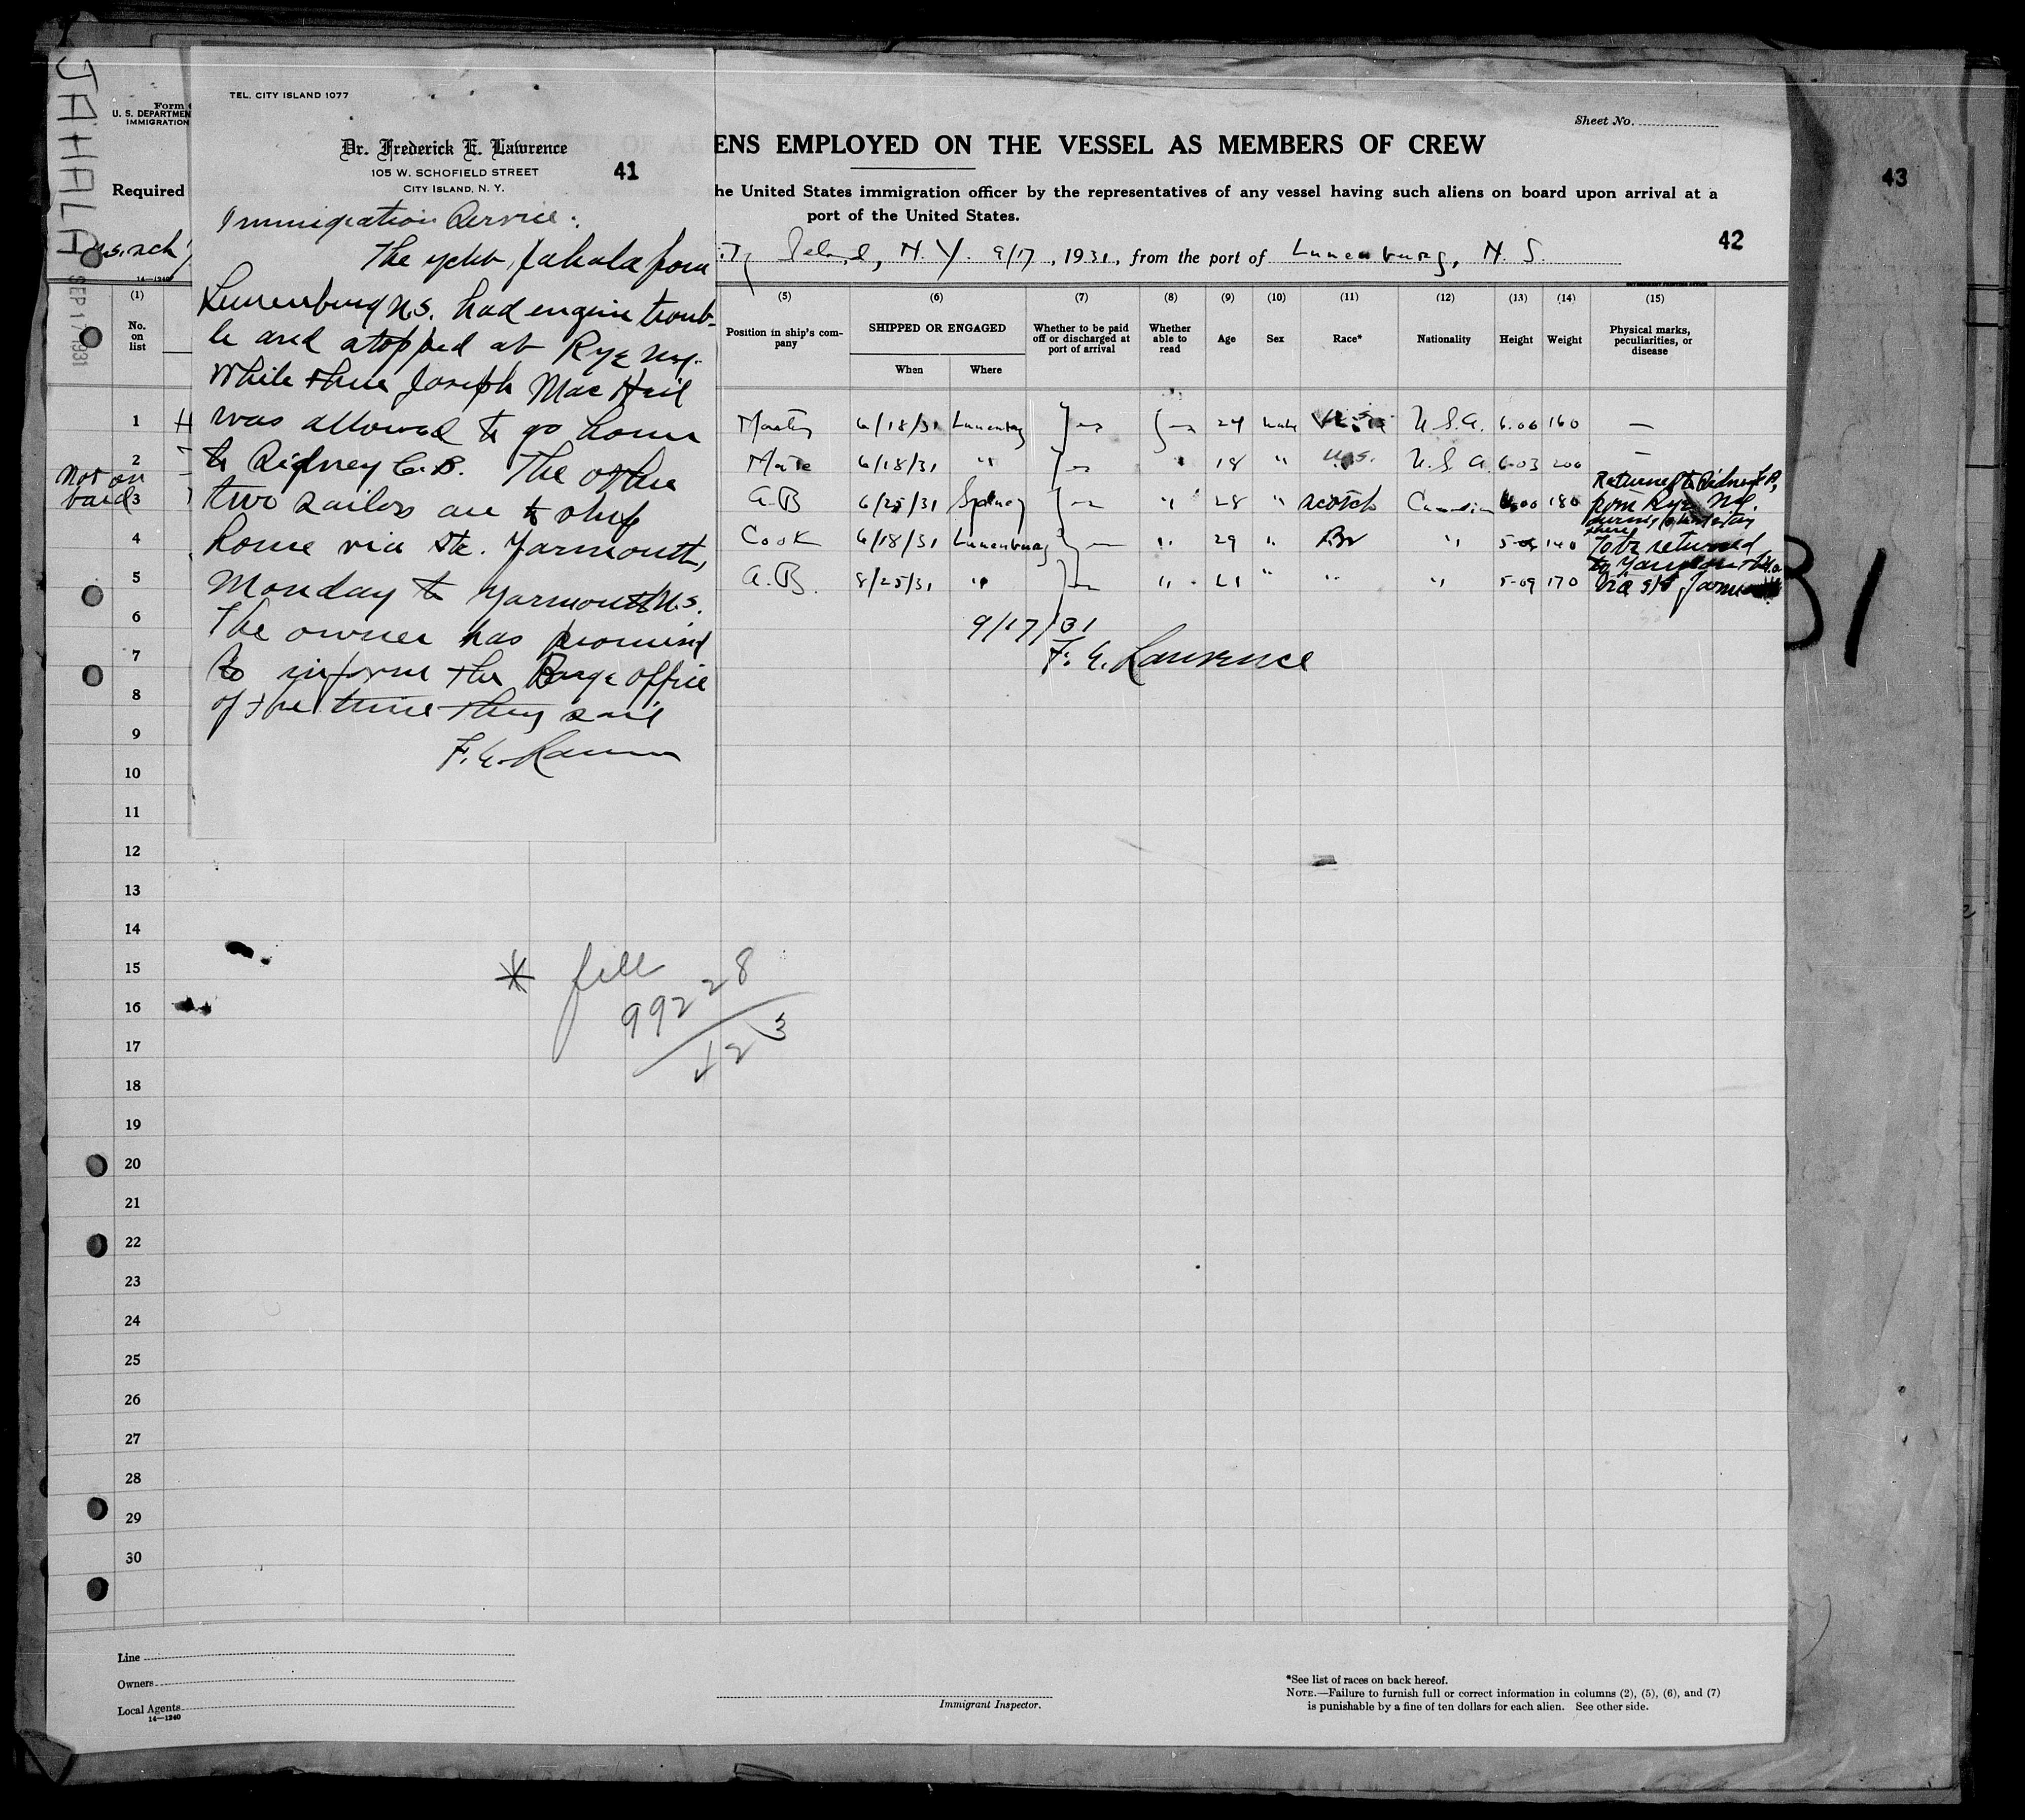 JAHALA
SEP 17 1931
TEL. CITY ISLAND 1077
Dr. Frederick E. Lawrence
105 W. SCHOFIELD STREET
CITY ISLAND, N. Y.
41
Immigration Service:
The ycht Jahala from
Lunenburg N.S. had engine troub-
le and stopped at Rye N.Y.
While there Joseph Mac
was allowed to go home
to Sidney C.B. The other
two sailors are to ship
home via Str. Yarmouth,
Monday to Yarmouth N.S.
The owner has promised
to inform the Barge office
of the time they sail
F. E.
Form
U. S. DEPARTMEN
IMMIGRATION
Sheet No.
ENS EMPLOYED ON THE VESSEL AS MEMBERS OF CREW
Required
he United States immigration officer by the representatives of any vessel having such aliens on board upon arrival at a
port of the United States.
42
43
Island, N. Y. 9/17, 1931, from the port of Lunenburg, N. S.
14—1240
(1) (5) (6) (7) (8) (9) (10) (11) (12) (13) (14) (15)
No. on list
Position in ship's com-
pany
SHIPPED OR ENGAGED
When Where
Whether to be paid
off or discharged at
port of arrival
Whether
able to
read
Age Sex Race* Nationality Height Weight
Physical marks,
peculiarities, or
disease
1 Master 6/18/31 Lunenburg 24 male U.S.A. 6.00 160 —
2 Mate 6/18/31 " " 18 " U.S. U.S.A. 6-03 200 —
Not on
board
3 A.B 6/25/31 Sydney " 28 " Scotch Canadian 180
Returned to Sidney C.B,
from Rye N.Y.
4 Cook 6/18/31 Lunenburg " 29 " Br " 140
To be returned
5 A.B. 8/25/31 " " 21 " " " 5-09 170
via S/S
6
9/17/31
7
F. E. Lawrence
8
9
10
11
12
13
14
15
16
17
18
19
20
21
22
23
24
25
26
27
28
29
30
31
* file
99228
/
123
Line
Owners
Local Agents
14—1240
Immigrant Inspector.
*See list of races on back hereof.
NOTE.—Failure to furnish full or correct information in columns (2), (5), (6), and (7)
is punishable by a fine of ten dollars for each alien. See other side.